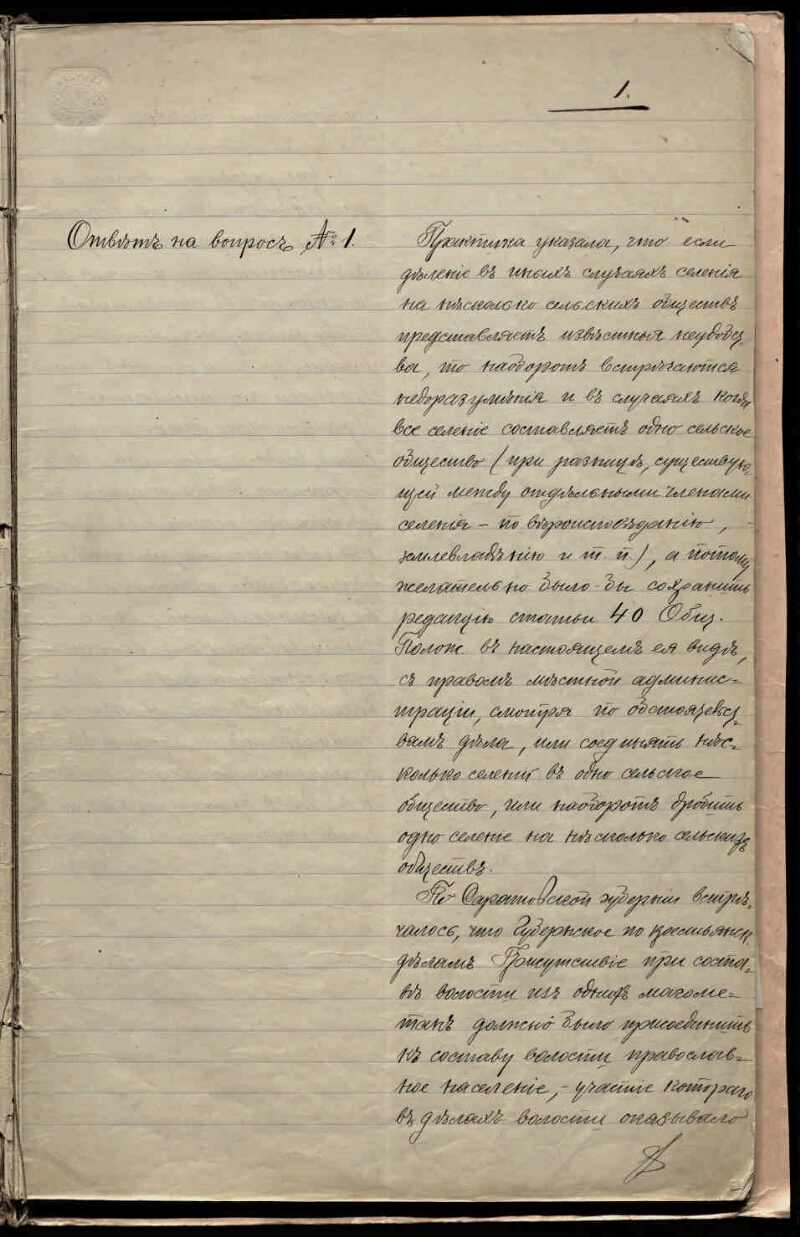 1.
Отвѣтъ на вопросъ № 1.
Практика указала, что если
дѣленіе въ иныхъ случаяхъ селенія
на нѣсколько сельскихъ обществъ
представляетъ извѣстныя неудобс
ва, то наоборотъ встрѣчаются
недоразумѣнія и въ случаяхъ когда
все селеніе составляетъ одно сельское
общество (при разницѣ, существую
щей между отдѣльными членами
селенія – по вѣроисповѣданію,
землевладѣнію и т. п.), а потому
желательно было-бы сохранить
редакцію статьи 40 Общ.
Полож. въ настоящемъ ея видѣ,
съ правомъ мѣстной админис-
траціи, смотря по обстоятельс
вамъ дѣла, или соединять нѣс-
колько селеній въ одно сельское
общество, или наоборотъ дробить
одно селеніе на нѣсколько сельскихъ
обществъ.
По Саратовской губерніи встрѣ-
чалось, что Губернское по крестьянск.
дѣламъ Присутствіе при соста-
вѣ волости изъ однихъ магоме-
танъ должно было присоединить
къ составу волости православ-
ное населеніе, – участіе котораго
въ дѣлахъ волости оказывало